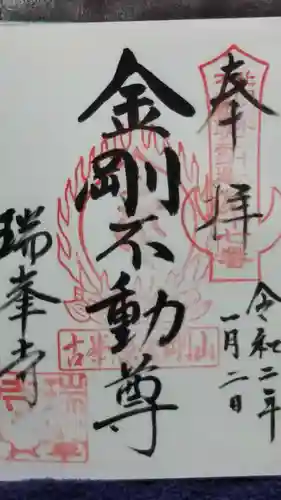 奉拝
令和二年
一月二日
金剛不動尊
瑞峯寺